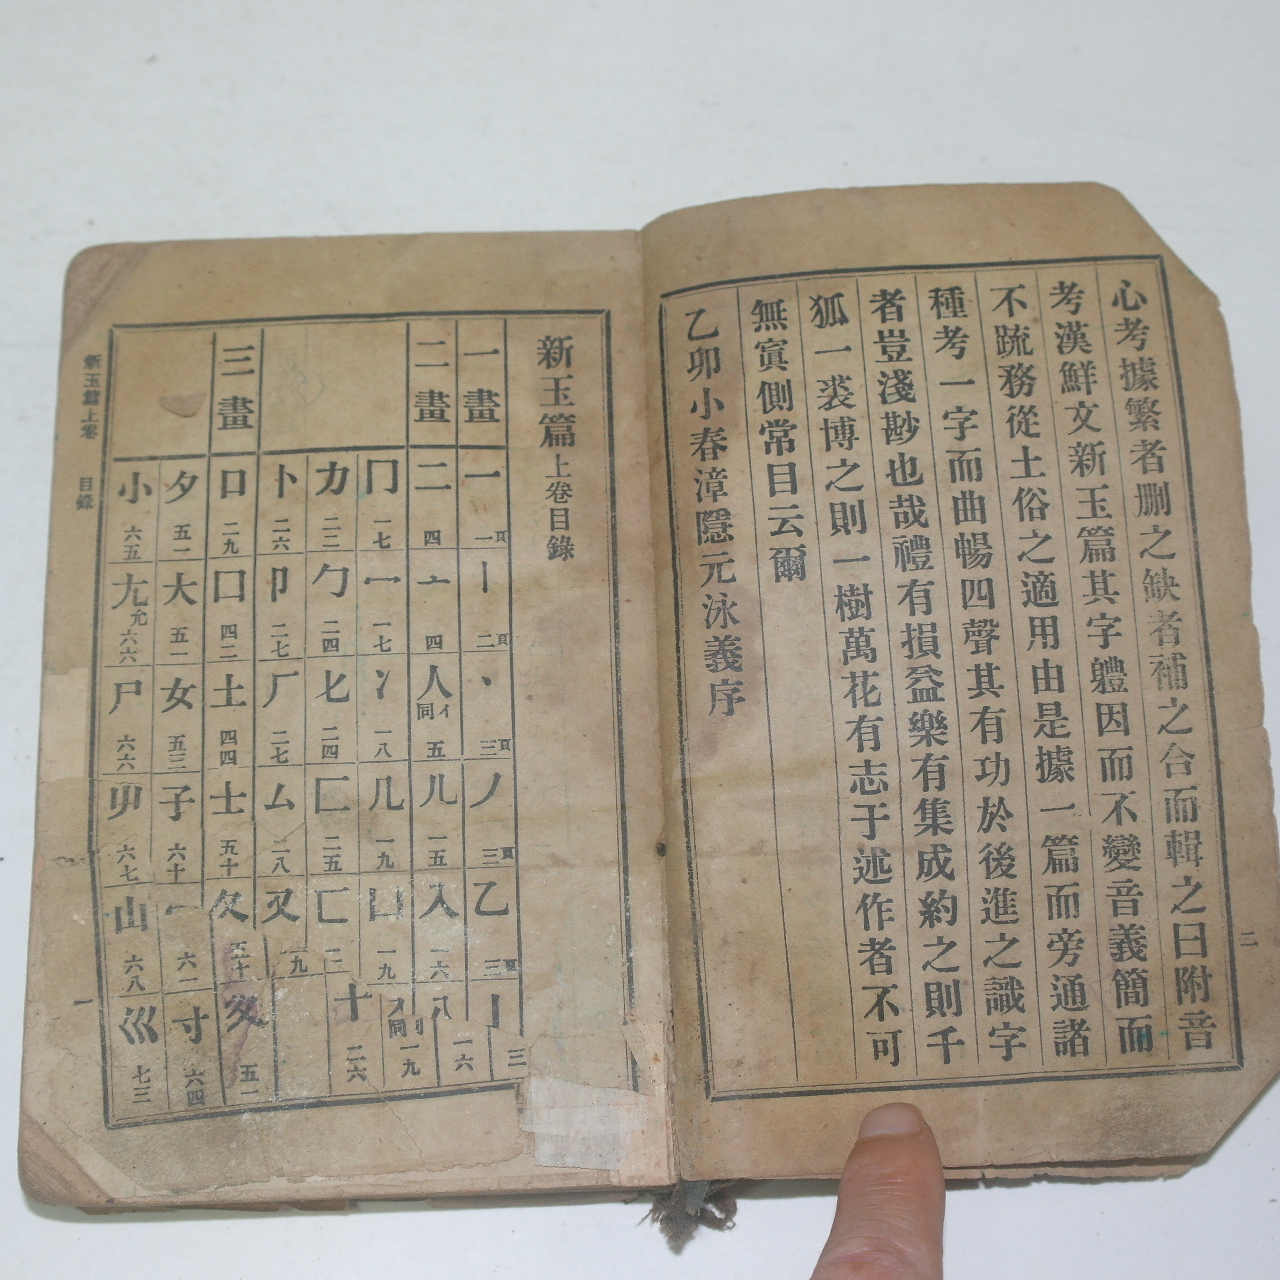 心考據繁者刪之缺者補之合而輯之曰附音
考漢鮮文新玉篇其字軆因而不變音義簡而
不䟽務從土俗之適用由是據一篇而旁通諸
種考一字而曲暢四聲其有功於後進之識字
者豈淺尠也哉禮有損益樂有集成約之則千
狐一裘博之則一樹萬花有志于述作者不可
無寘側常目云爾
乙卯小春漳隱元泳義序
二
新玉篇上卷目錄
一畫
一 一頁
丨 二頁
丶 三頁
丿 三頁
乙 三頁
亅 三
二畫
二 四
亠 四
人 亻同 五
儿 一五
入 一六
八 一六
冂 一七
冖 一七
冫 一八
几 一九
凵 一九
刀 刂同 一九
力 二二
勹 二四
匕 二四
匚 二五
匸
十 二六
卜 二六
卩 二七
厂 二七
厶 二八
又
三畫
口 二九
囗 四二
土 四四
士 五十
夂 五十
夊 五一
夕 五一
大 五一
女 五三
子 六十
宀 六一
寸 六四
小 六五
尢 尣 六六
尸 六六
屮 六七
山 六八
巛 七三
新玉篇上卷 目錄
一